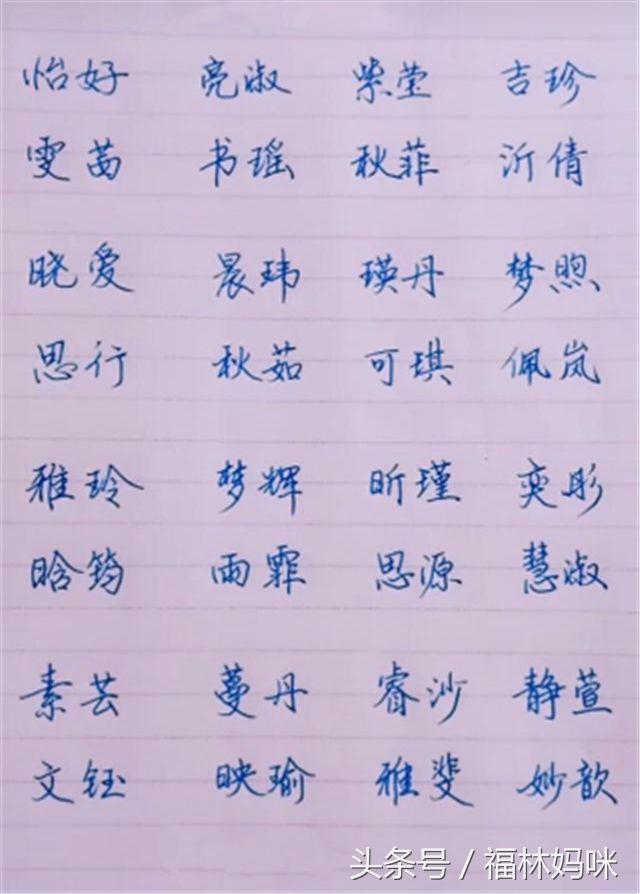 怡好 亮淑 紫莹 吉珍
雯茜 书瑶 秋菲 沂倩
晓爱 晨玮 瑛丹 梦煦
思行 秋茹 可琪 佩岚
雅玲 梦辉 昕瑾 奕彤
晗筠 雨霏 思源 慧淑
素芸 蔓丹 睿沙 静萱
文钰 映瑜 雅斐 妙歆
头条号 / 福林妈咪